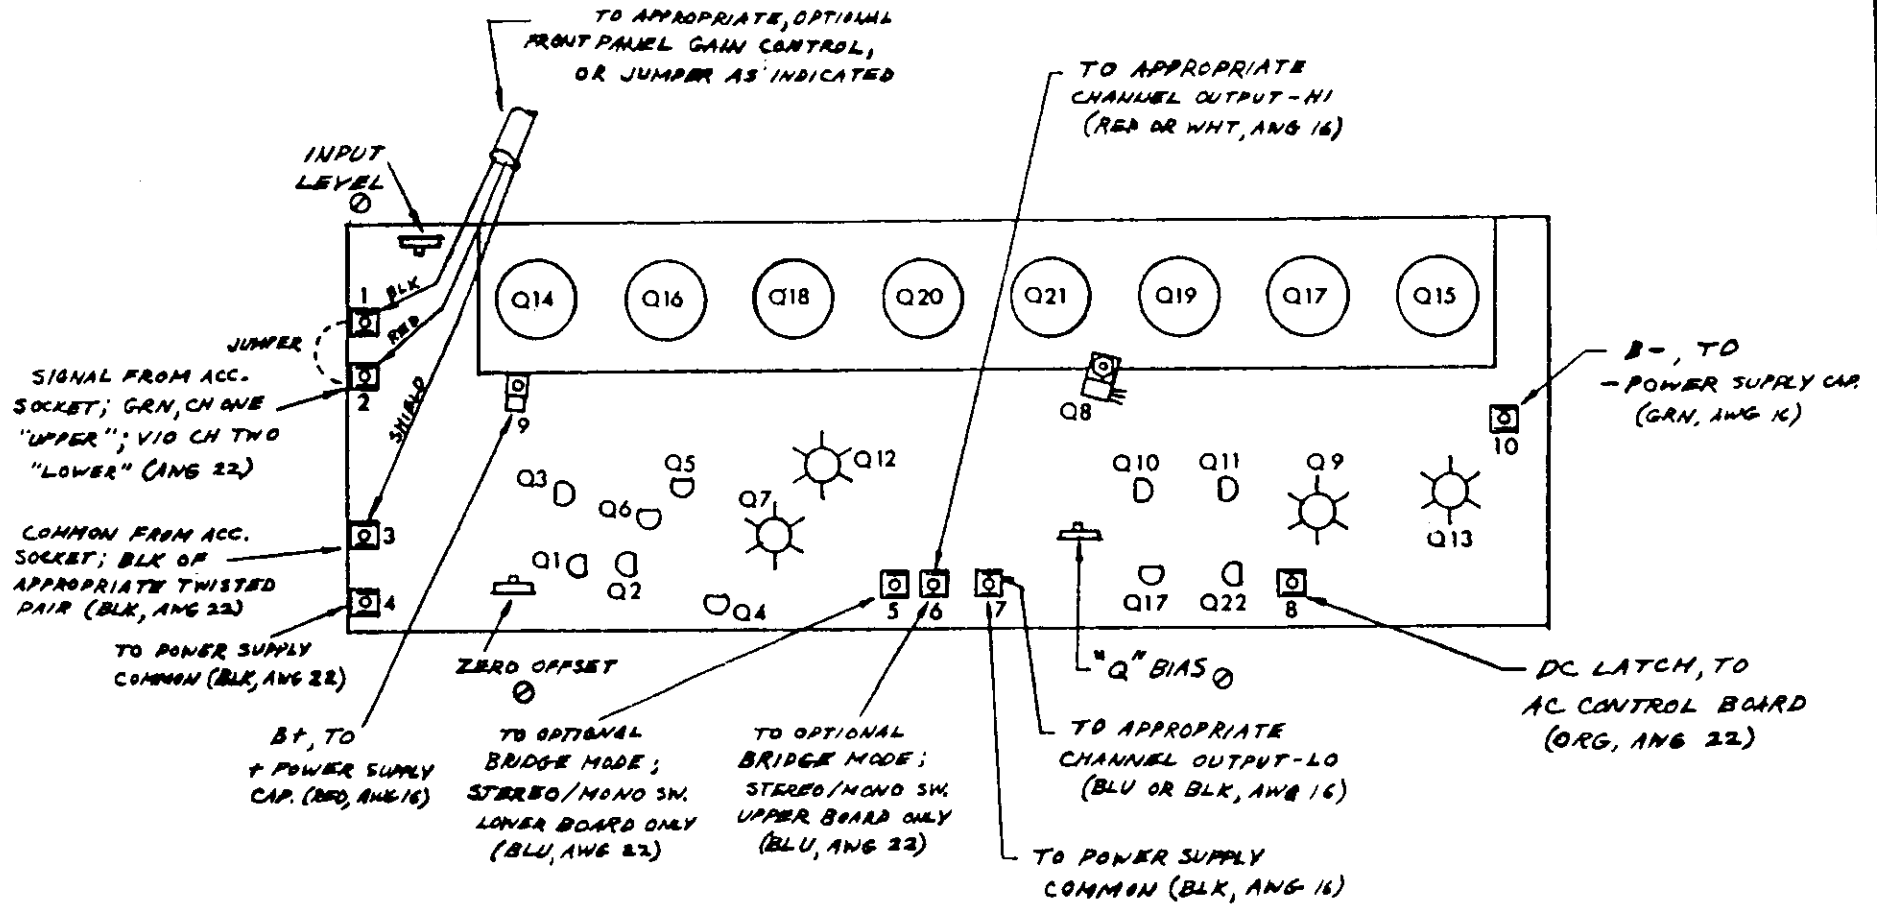 TO APPROPRIATE, OPTIONAL
FRONT PANEL GAIN CONTROL,
OR JUMPER AS INDICATED
TO APPROPRIATE
CHANNEL OUTPUT-HI
(RED OR WHT, AWG 16)
INPUT
LEVEL
1
BLK
RED
JUMPER
2
SHIELD
SIGNAL FROM ACC.
SOCKET; GRN, CH ONE
"UPPER"; VIO CH TWO
"LOWER" (AWG 22)
Q14
Q16
Q18
Q20
Q21
Q19
Q17
Q15
B-, TO
- POWER SUPPLY CAP.
(GRN, AWG 16)
9
Q8
10
Q3
Q5
Q12
Q10
Q11
Q9
Q6
Q7
Q13
COMMON FROM ACC.
SOCKET; BLK OF
APPROPRIATE TWISTED
PAIR (BLK, AWG 22)
3
4
Q1
Q2
Q4
5
6
7
Q17
Q22
8
TO POWER SUPPLY
COMMON (BLK, AWG 22)
ZERO OFFSET
"Q" BIAS
DC LATCH, TO
AC CONTROL BOARD
(ORG, AWG 22)
B+, TO
+ POWER SUPPLY
CAP. (RED, AWG 16)
TO OPTIONAL
BRIDGE MODE;
STEREO/MONO SW.
LOWER BOARD ONLY
(BLU, AWG 22)
TO OPTIONAL
BRIDGE MODE;
STEREO/MONO SW.
UPPER BOARD ONLY
(BLU, AWG 22)
TO APPROPRIATE
CHANNEL OUTPUT-LO
(BLU OR BLK, AWG 16)
TO POWER SUPPLY
COMMON (BLK, AWG 16)